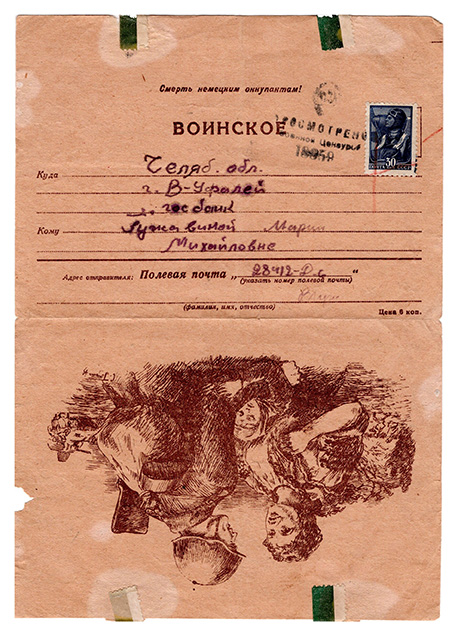 Смерть немецким оккупантам!
ВОИНСКОЕ
ПРОСМОТРЕНО
Военной Цензурой
30
ПОЧТА СССР
Куда
Челяб. обл.
г. В-Уфалей
госбанк
Кому
Михайловне
Адрес отправителя: Полевая почта „28412-Д“
(указать номер полевой почты)
(фамилия, имя, отчество)
Цена 6 коп.